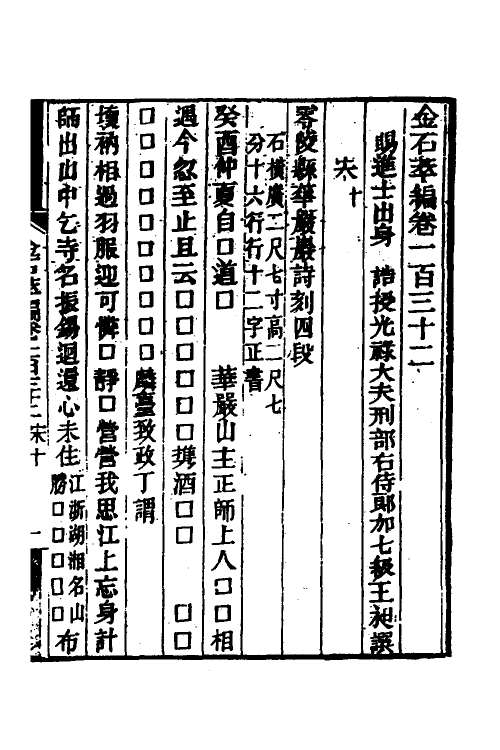 金石萃編卷一百三十二
賜進士出身　誥授光祿大夫刑部右侍郎加七級王昶譔
宋十
零陵縣華嚴巖詩刻四段
石橫廣二尺七寸高二尺七
分十六行行十二字正書
癸酉仲夏自□道□　　華嚴山主正師上人□□相
過今忽至止且云□□□□□□□攜酒□□　　□□
□□□□□□□□麟臺致政丁謂
壞衲相過羽服迎可憐□靜□營營我思江上忘身計
師出山中乞寺名振錫迴還心未住江浙湖湘名山
勝□□□□□布
金石萃編卷一百三十二　宋十　一